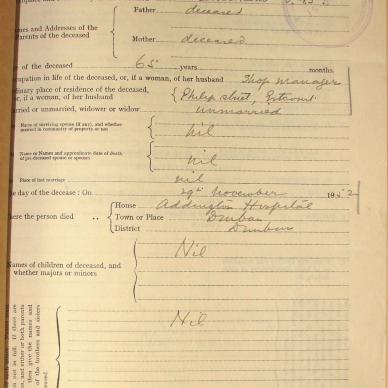 Father deceased
Names and Addresses of the
Parents of the deceased
Mother deceased
of the deceased 65 years months.
occupation in life of the deceased, or, if a woman, of her husband Shop manager
ordinary place of residence of the deceased,
or, if a woman, of her husband Philip street, Estcourt
married or unmarried, widower or widow unmarried
Name of surviving spouse (if any), and whether
married in community of property or not nil
Name or Names and approximate date of death
of pre-deceased spouse or spouses nil
Place of last marriage nil
the day of the decease : On 29th November 1952
House Addington Hospital
where the person died .. Town or Place Durban
District Durban
Names of children of deceased, and
whether majors or minors Nil
Nil